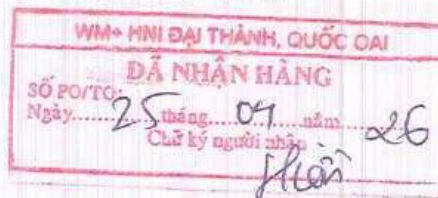 WM+ HNI ĐẠI THÀNH, QUỐC OAI
ĐÃ NHẬN HÀNG
SỐ PO/TO:
Ngày.....25.....tháng.....04.....năm.....26
Chữ ký người nhận